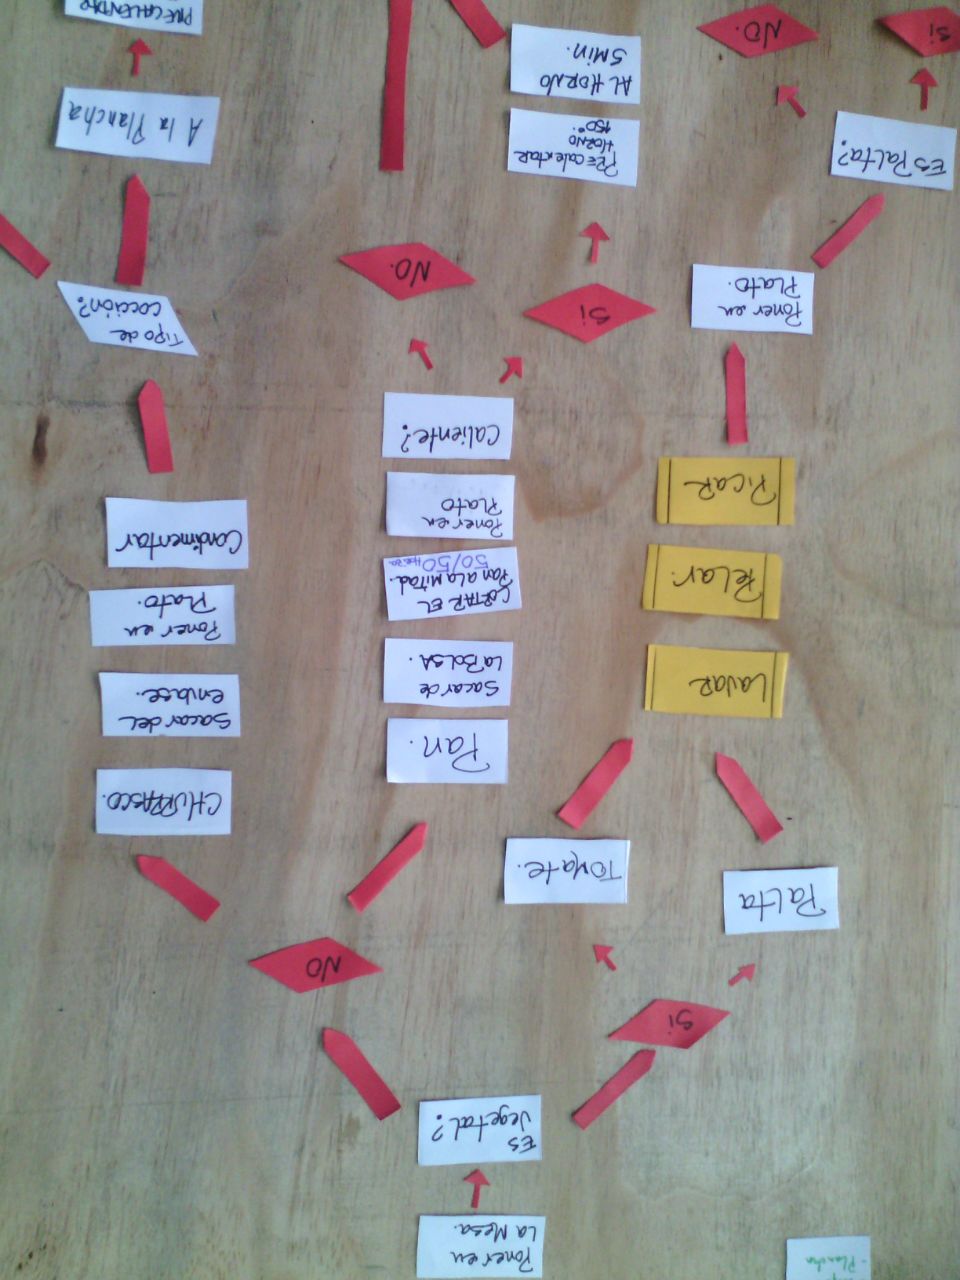 - Plancha
Poner en
La Mesa.
ES
vegetal?
Si
NO
Palta
Tomate.
LAVAR
Pelar.
PicaR
Poner en
Plato.
ES PaLTa?
Si
NO.
Pan.
Sacar de
La BOLSA.
CORTAR EL
Pan a la mitad.
50/50
Poner en
Plato
Caliente?
Si
NO.
PRECALENTAR
HORNO
150°
AL HORNO
5 Min.
CHURRASCO.
Sacar del
envase.
Poner en
Plato.
Condimentar
Tipo de
cocción?
A la Plancha
PRECALENTAR